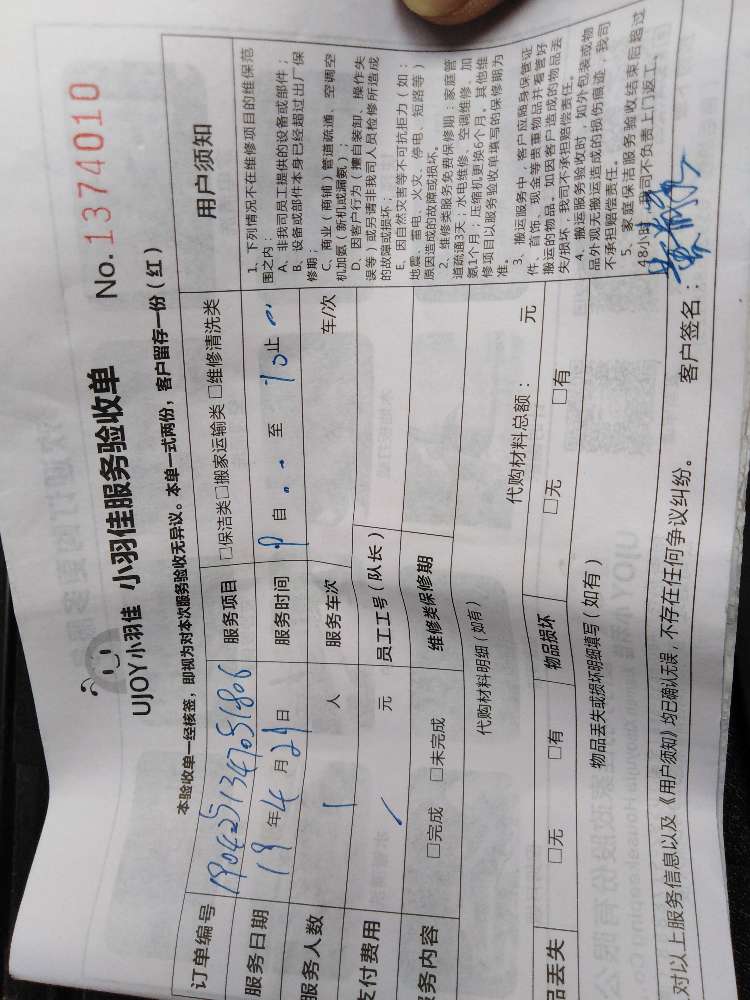 UJOY小羽佳 小羽佳服务验收单 No. 1374010
本验收单一经核签，即视为对本次服务验收无异议。本单一式两份，客户留存一份（红）
订单编号 服务项目 □保洁类□搬家运输类 □维修清洗类
服务日期 19 年 4 月 29 日 服务时间 9 自 至 10 止
服务人数 1 人 服务车次 车/次
支付费用 / 元 员工工号（队长）
务内容 □完成 □未完成 维修类保修期
代购材料明细（如有） 代购材料总额： 元
品丢失 □无 □有 物品损坏 □无 □有
物品丢失或损坏明细填写（如有）
用户须知
1、下列情况不在维修项目的维保范
围之内：
A、非我司员工提供的设备或部件；
B、设备或部件本身已经超过出厂保
修期；
C、商业（商铺）管道疏通、空调空
机加氨（新机或漏氨）；
D、因客户行为（擅自装卸、操作失
误等）或另请非我司人员检修所造成
的故障或损坏；
E、因自然灾害等不可抗拒力（如：
地震、雷电、火灾、停电、短路等）
原因造成的故障或损坏。
2、维修类服务免费保修期：家庭管
道疏通3天；水电维修、空调维修、加
氨1个月；压缩机更换6个月。其他维
修项目以服务验收单填写的保修期为
准。
3、搬运服务中，客户应随身保管证
件、首饰、现金等贵重物品并看管好
搬运的物品。如因客户造成的物品丢
失/损坏，我司不承担赔偿责任。
4、搬运服务验收时，如外包装或物
品外观无搬运造成的损伤痕迹，我司
不承担赔偿责任。
5、家庭保洁服务验收结束后超过
48小时，我司不负责上门返工。
对以上服务信息以及《用户须知》均已确认无误，不存在任何争议纠纷。 客户签名：